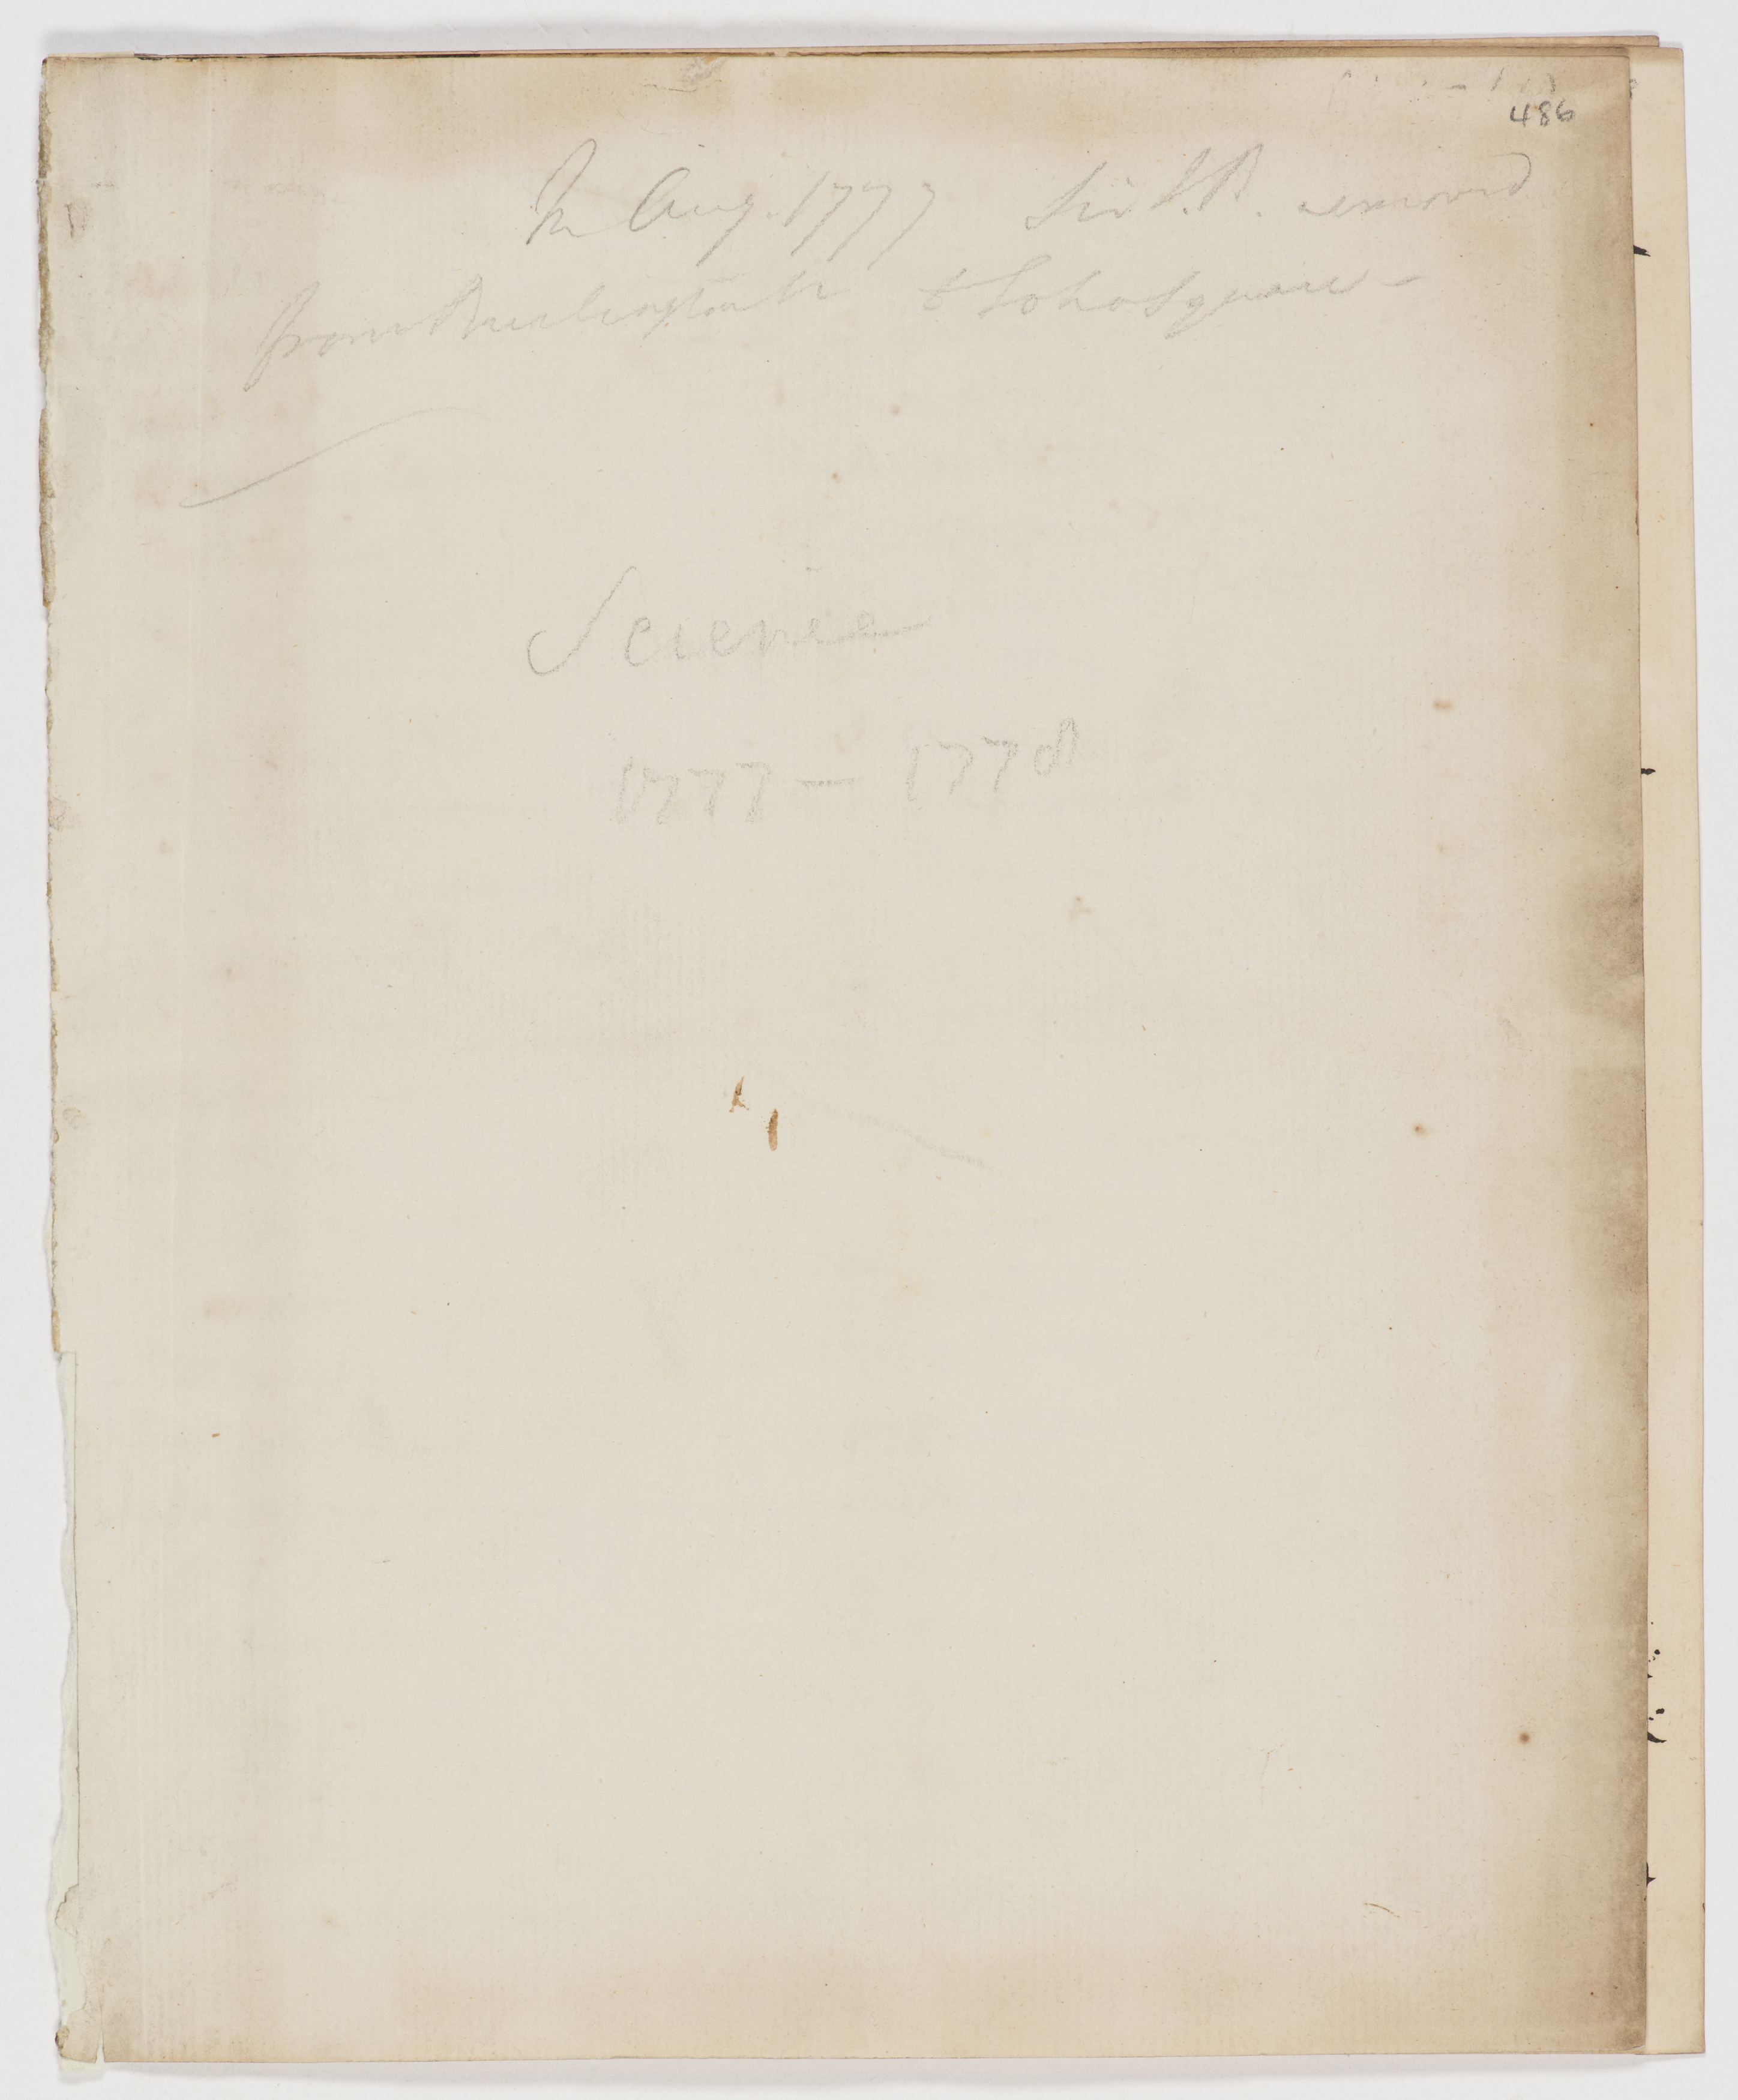 486
In Aug. 1777 Sir J.B. removed
from Burlington St to Soho Square -
Science
1777 - 1778